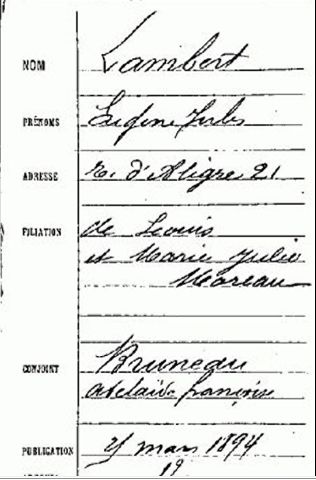 NOM Lambert
PRÉNOMS Eugène Jules
ADRESSE R. d'Aligre 21
FILIATION de Louis
et Marie Julie
Moreau
CONJOINT Bruneau
Adelaide françoise
PUBLICATION mars 1894
19